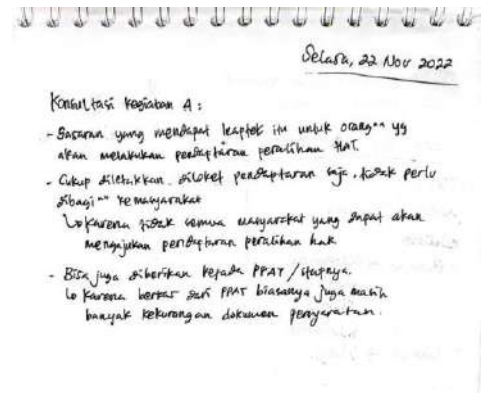 Selasa, 22 Nov 2022
Konsultasi Kegiatan A :
- Sasaran yang mendapat leaflet itu untuk orang" yg
akan melakukan pendaftaran peralihan HAT.
- Cukup diletakkan diloket pendaftaran saja, tidak perlu
dibagi" ke masyarakat
↳ Karena tidak semua masyarakat yang dapat akan
mengajukan pendaftaran peralihan hak
- Bisa juga diberikan kepada PPAT / stafnya.
↳ Karena berkas dari PPAT biasanya juga masih
banyak kekurangan dokumen persyaratan.